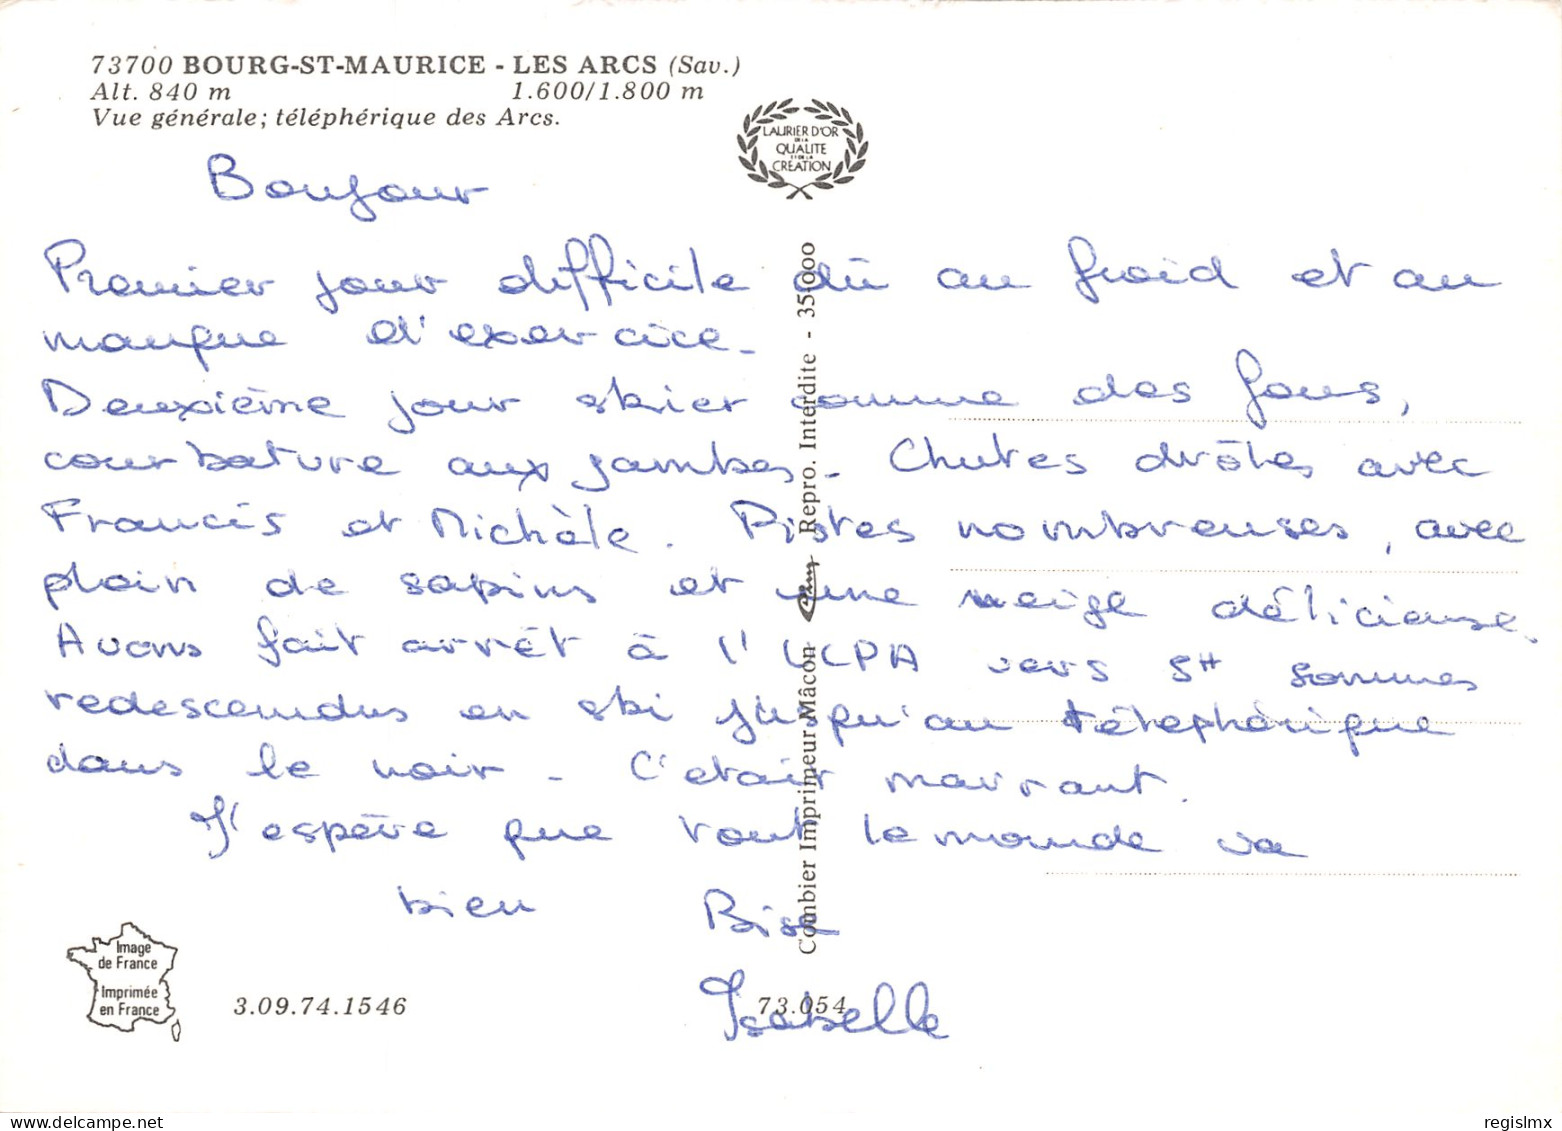 73700 BOURG-ST-MAURICE - LES ARCS (Sav.)
Alt. 840 m 1.600/1.800 m
Vue générale; téléphérique des Arcs.
LAURIER D'OR
DE LA
QUALITE
ET DE LA
CREATION
Bonjour
Premier jour difficile dû au froid et au
manque d'exercice.
Deuxième jour skier comme des fous,
courbature aux jambes. Chutes drôles avec
Francis et Michèle. Pistes nombreuses, avec
plein de sapins et une neige délicieuse.
Avons fait arrêt à l'UCPA vers 5H sommes
redescendus en ski jusqu'au téléphérique
dans le noir. C'etait marrant.
J'espère que tout le monde va
bien Bise
Isabelle
Combier Imprimeur Mâcon Repro. Interdite - 35.000
Image
de France
Imprimée
en France
3.09.74.1546
73.054
regislmx